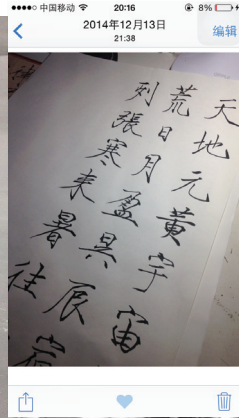 中国移动 20:16 8%
2014年12月13日
21:38
编辑
天地元黃宇宙
荒日月盈昃辰宿
列張寒来暑往